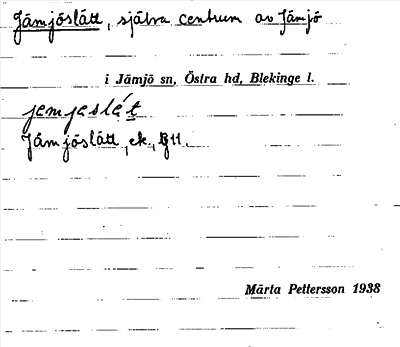 Jämjöslätt, själva centrum av Jämjö
i Jämjö sn, Östra hd, Blekinge l.
jemjeslät
Jämjöslätt, ek., B 11.
Märta Pettersson 1938